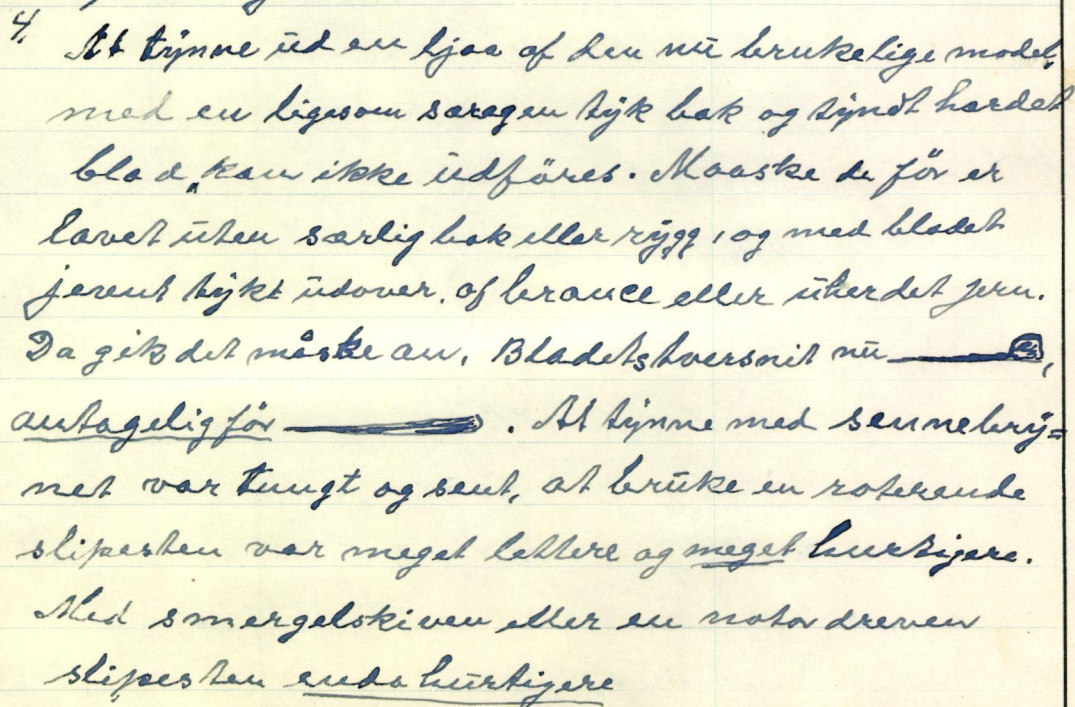 4.
At tynne ud en ljaa af den nu brukelige model,
med en ligesom særegen tyk bak og tyndt hærdet
blad, kan ikke udføres. Maaske de før er
lavet uten særlig bak eller rygg, og med bladet
jevnt tykt udover, af bronce eller uherdet jern.
Da gik det måske an. Bladets tversnit nu ,
antagelig før . At tynne med sennebry=
net var tungt og sent, at bruke en roterende
slipesten var meget lettere og meget hurtigere.
Med smergelskiven eller en motordreven
slipesten enda hurtigere